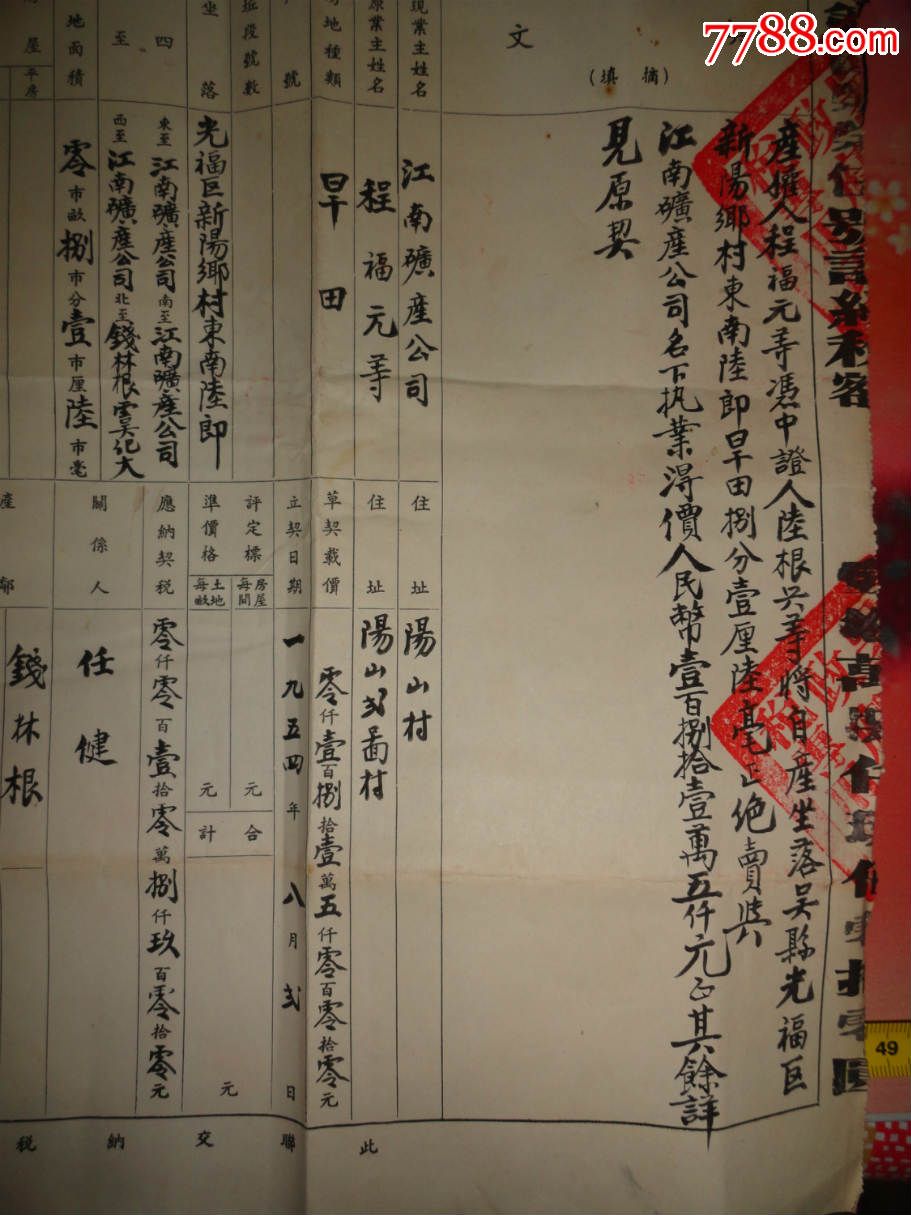 7788.com
文
(摘填)
產權人程福元等憑中證人陸根興等將自產坐落吳縣光福区
新陽鄉村東南陸即旱田捌分壹厘陸毫正绝賣與
江南礦產公司名下执業淂價人民幣壹百捌拾壹萬五仟元正其餘詳
見原契
現業主姓名
江南礦產公司
住址
陽山村
原業主姓名
程福元等
住址
陽山弍啚村
地種類
旱田
草契載價
零仟壹百捌拾壹萬五仟零百零拾零元
號
立契日期
一九五四年八月弍日
段號數
評定標準價格
每間房屋
元
每畝土地
元
合計
元
坐落
光福区新陽鄉村東南陸即
四至
東至江南礦產公司
南至江南礦產公司
西至江南礦產公司
北至錢林根
應納契税
零仟零百壹拾零萬捌仟玖百零拾零元
地面積
零市畝捌市分壹市厘陸市毫
關係人
任健
屋
平房
產
鄰
錢林根
此聯交納税
49